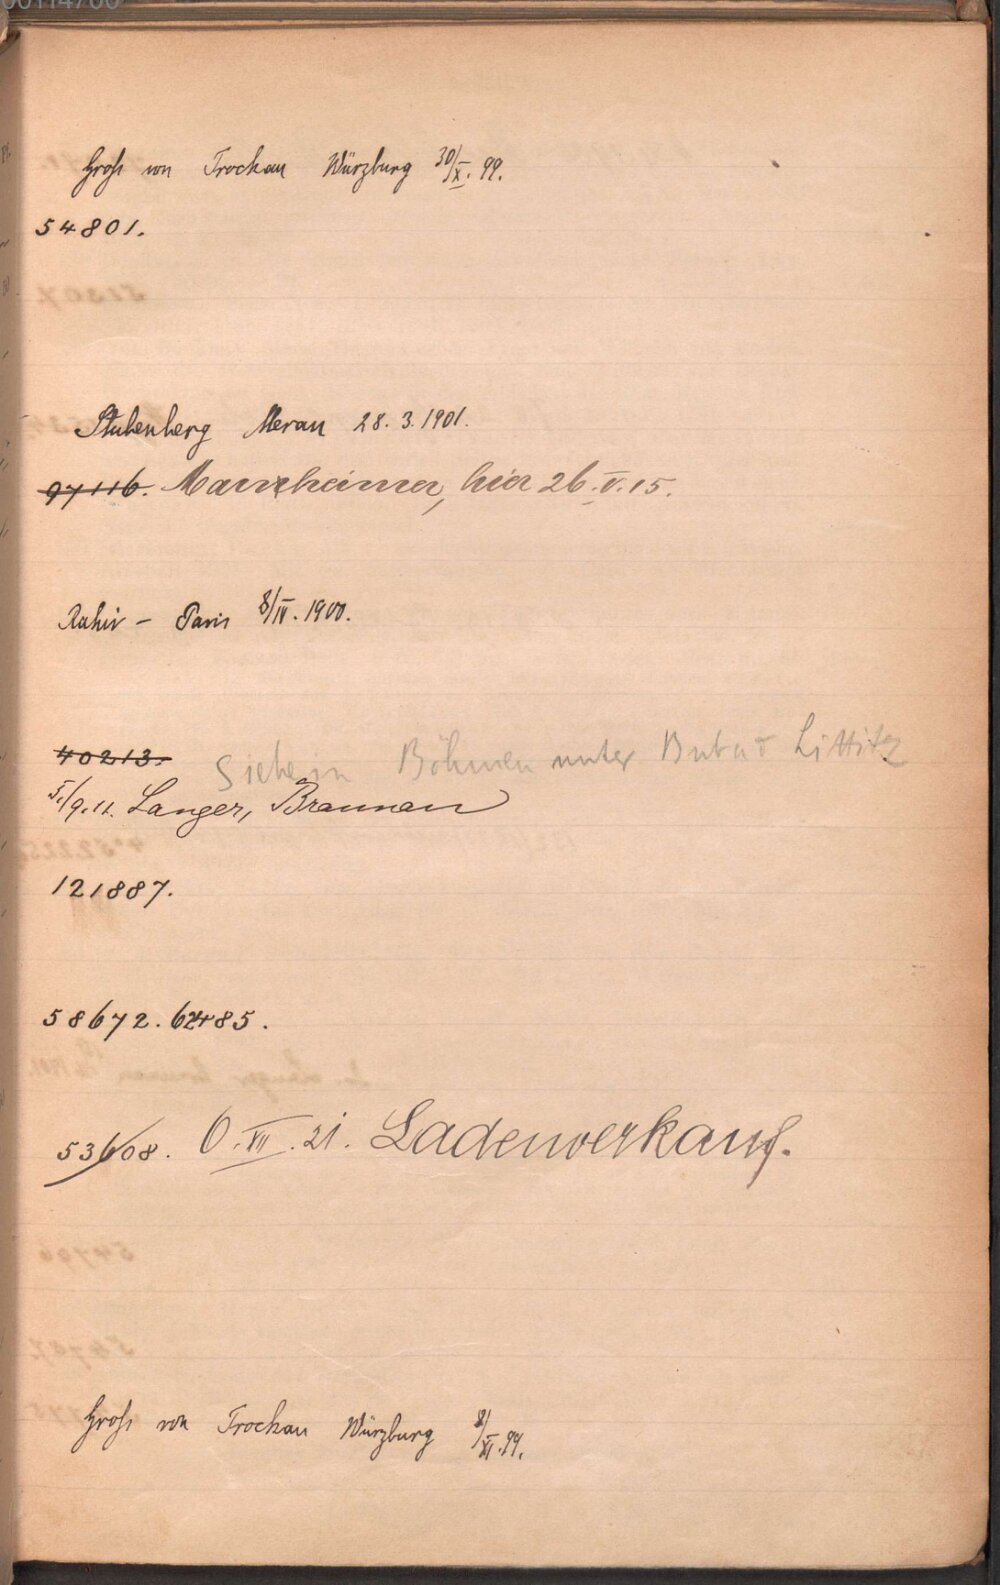 Groß von Trockau Würzburg 30/X. 99.
54801.
Stubenberg Meran 28.3.1901.
97116. Mannheimer, hier 26.V.15.
Rahir - Paris 8/IV. 1900.
40213. Siehe in Böhmen unter Littitz
5./9.11. Langer, Braunau
121887.
58672. 62485.
53608. 6.VII.21. Ladenverkauf.
Groß von Trockau Würzburg 8/XI.99.